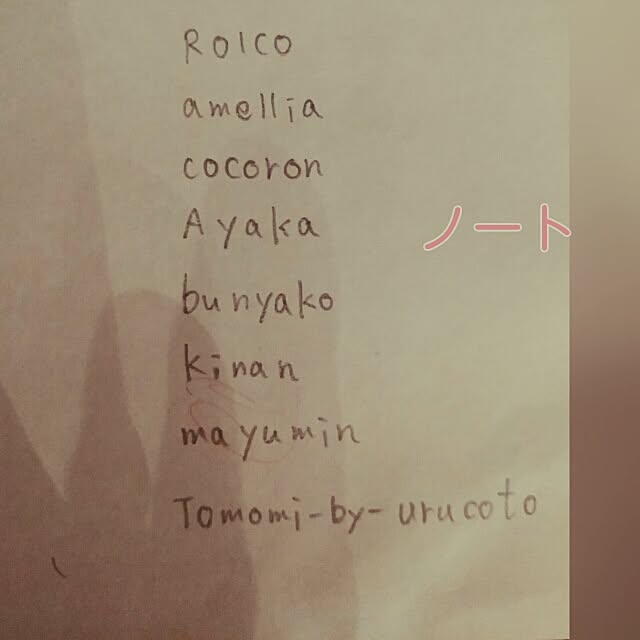 ROICO
amellia
cocoron
Ayaka
ノート
bunyako
kinan
mayumin
Tomomi-by-urucoto